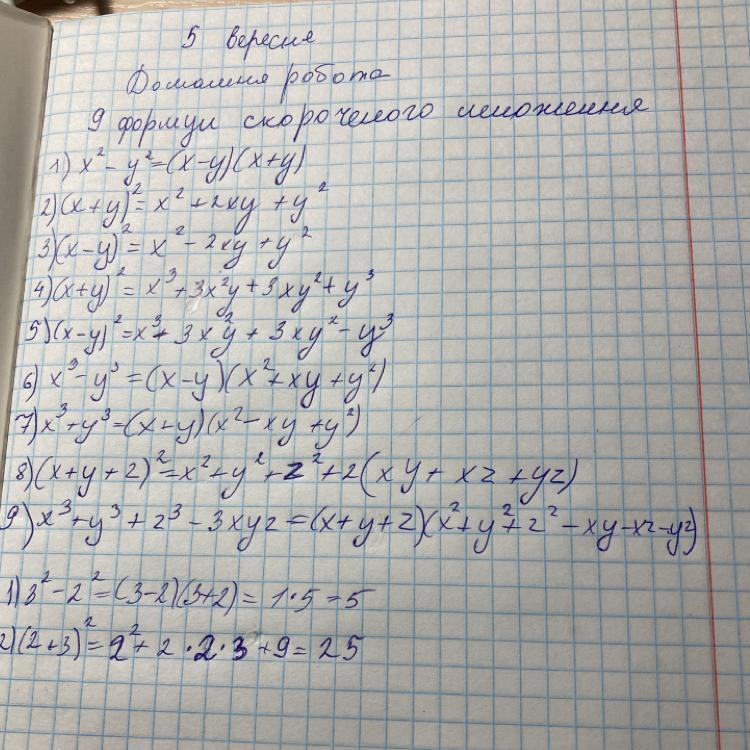 5 вересня
Домашня робота
9 формул скороченого множення
1) x² - y² = (x-y)(x+y)
2) (x+y)² = x² + 2xy + y²
3) (x-y)² = x² - 2xy + y²
4) (x+y)² = x³ + 3x²y + 3xy² + y³
5) (x-y)² = x³ - 3x²y + 3xy² - y³
6) x³ - y³ = (x-y)(x² + xy + y²)
7) x³ + y³ = (x+y)(x² - xy + y²)
8) (x+y+z)² = x² + y² + z² + 2(xy + xz + yz)
9) x³ + y³ + z³ - 3xyz = (x+y+z)(x² + y² + z² - xy - xz - yz)
1) 3² - 2² = (3-2)(3+2) = 1·5 = 5
2) (2+3)² = 2² + 2·2·3 + 9 = 25